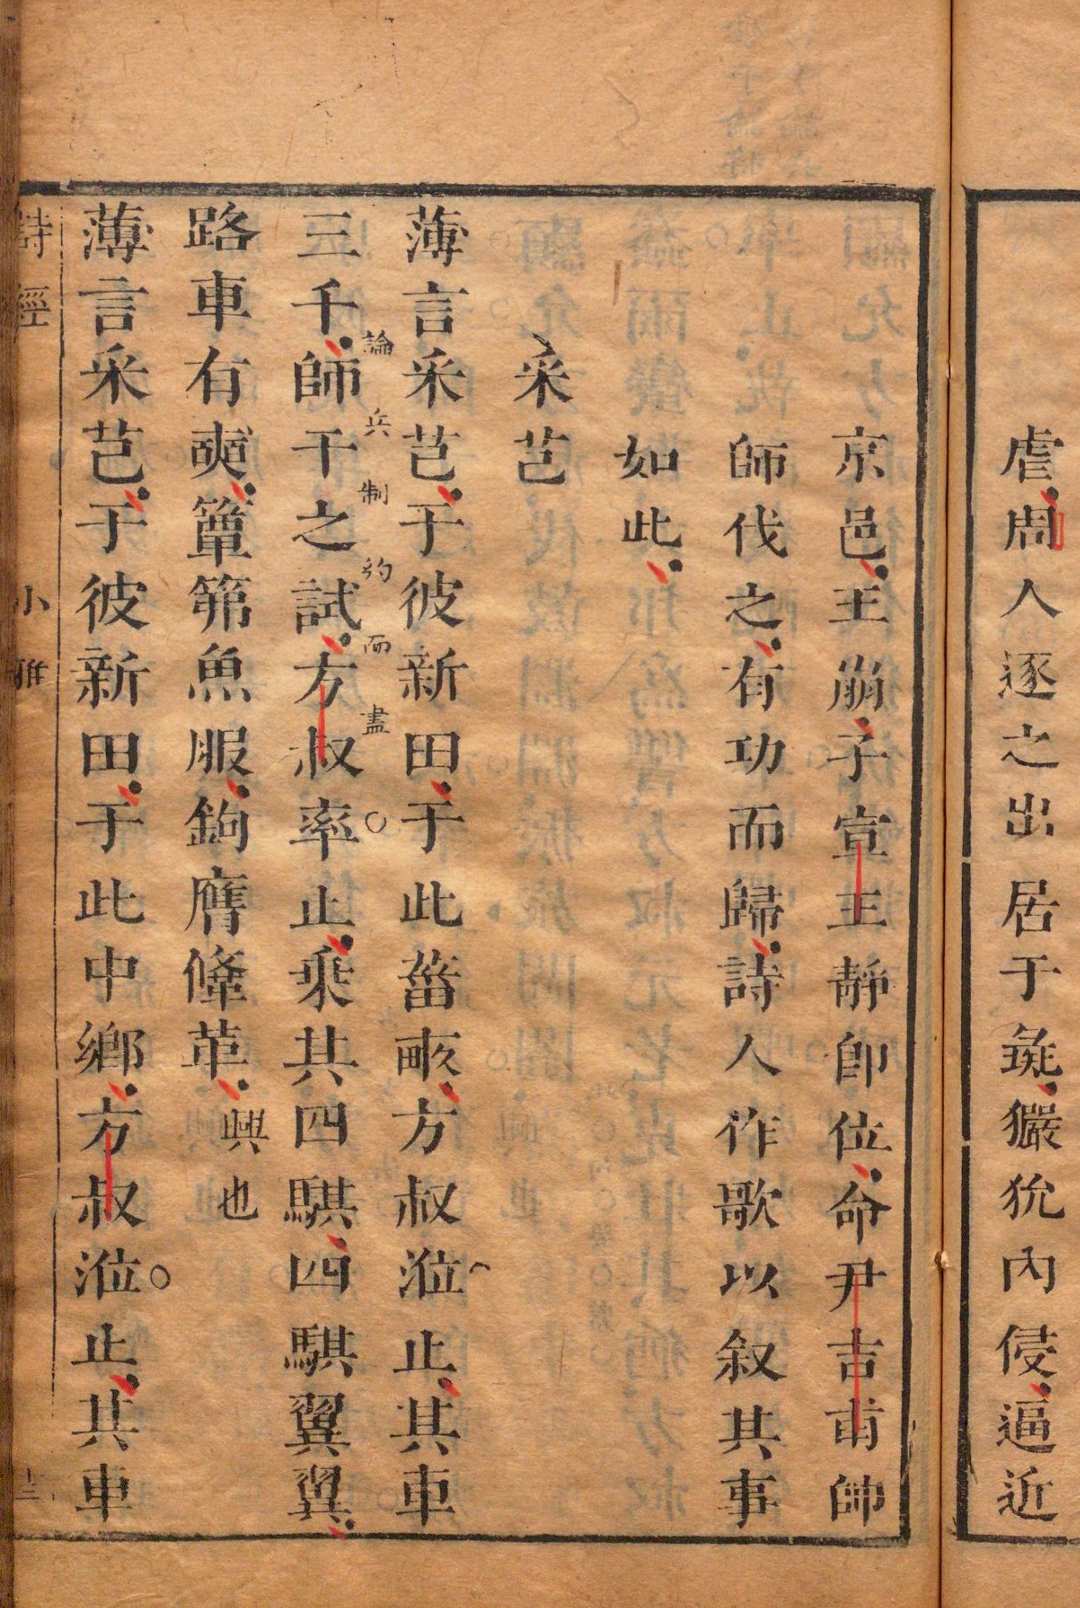 虐周人逐之出居于彘玁狁內侵逼近
京邑王崩子宣王靜卽位命尹吉甫帥
師伐之有功而歸詩人作歌以叙其事
如此
采芑
薄言采芑于彼新田于此菑畝方叔涖止其車
三千師干之試方叔率止乘其四騏四騏翼翼
論兵制約而盡
路車有奭簟笰魚服鉤膺鞗革興也
薄言采芑于彼新田于此中鄉方叔涖止其車
詩經 小雅 十三